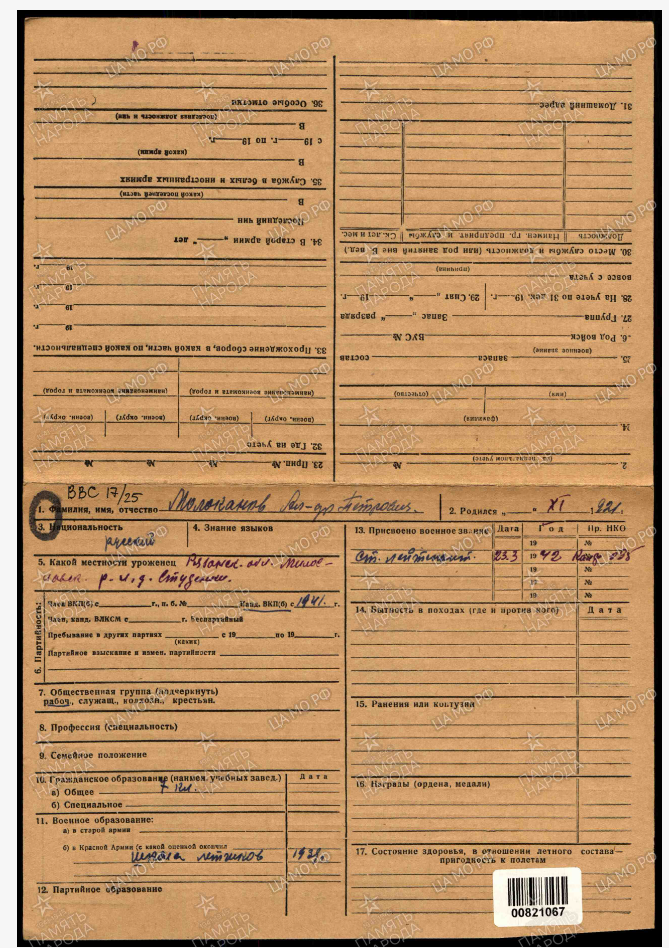 ВВС 17/25
1. Фамилия, имя, отчество Молоканов Ал-др Петрович.
2. Родился „ “ XI 1921.
3. Национальность
русский
4. Знание языков
5. Какой местности уроженец Рязанск. обл.
р-н, д. Студенки.
6. Партийность:
Член ВКП(б) с г., п. б. № Канд. ВКП(б) с 1941 г.
Член, канд. ВЛКСМ с г. Беспартийный
Пребывание в других партиях с 19 по 19 г.
(каких)
Партийные взыскания и измен. партийности
7. Общественная группа (подчеркнуть)
рабоч., служащ., колхозн., крестьян.
8. Профессия (специальность)
9. Семейное положение
10. Гражданское образование (наимен. учебных завед.) Дата
а) Общее 7 кл.
б) Специальное
11. Военное образование:
а) в старой армии
б) в Красной Армии (с какой оценкой окончил
школа летчиков 1939.
12. Партийное образование
13. Присвоено военное звание Дата Год Пр. НКО
19 №
Ст. лейтенант. 23.3 1942
19 №
19 №
19 №
14. Бытность в походах (где и против кого) Дата
15. Ранения или контузии
16. Награды (ордена, медали)
17. Состояние здоровья, в отношении летного состава—
пригодность к полетам
00821067
2. № (на персональном учете)
14.
(фамилия)
(имя) (отчество)
25. Запаса состав
(военное звание)
6. Род войск ВУС №
27. Группа Запас „ “ разряда
28. На учете по 31 дек. 19 г. 29. Снят „ “ 19 г.
вовсе с учета
(причина)
30. Место службы и должность (или род занятий вне В. вед.)
Должность Наимен. гр. предприят. и службы Ск. лет и мес.
31. Домашний адрес
23. Прип. № № №
32. Где на учете
(воен. округ) (округ) (воен. округ) (воен. округ)
(наименование военкомата и город) (наименование военкомата и город)
33. Прохождение сборов, в какой части, по какой специальности.
19 г.
19 г.
19 г.
19 г.
34. В старой армии „ “ лет
Последний чин
В
(какой последней части)
35. Служба в белых и иностранных армиях
В
(какой армии)
с 19 г. по 19 г.
В
(последняя должность и чин)
36. Особые отметки
ПАМЯТЬ НАРОДА
ЦАМО.РФ